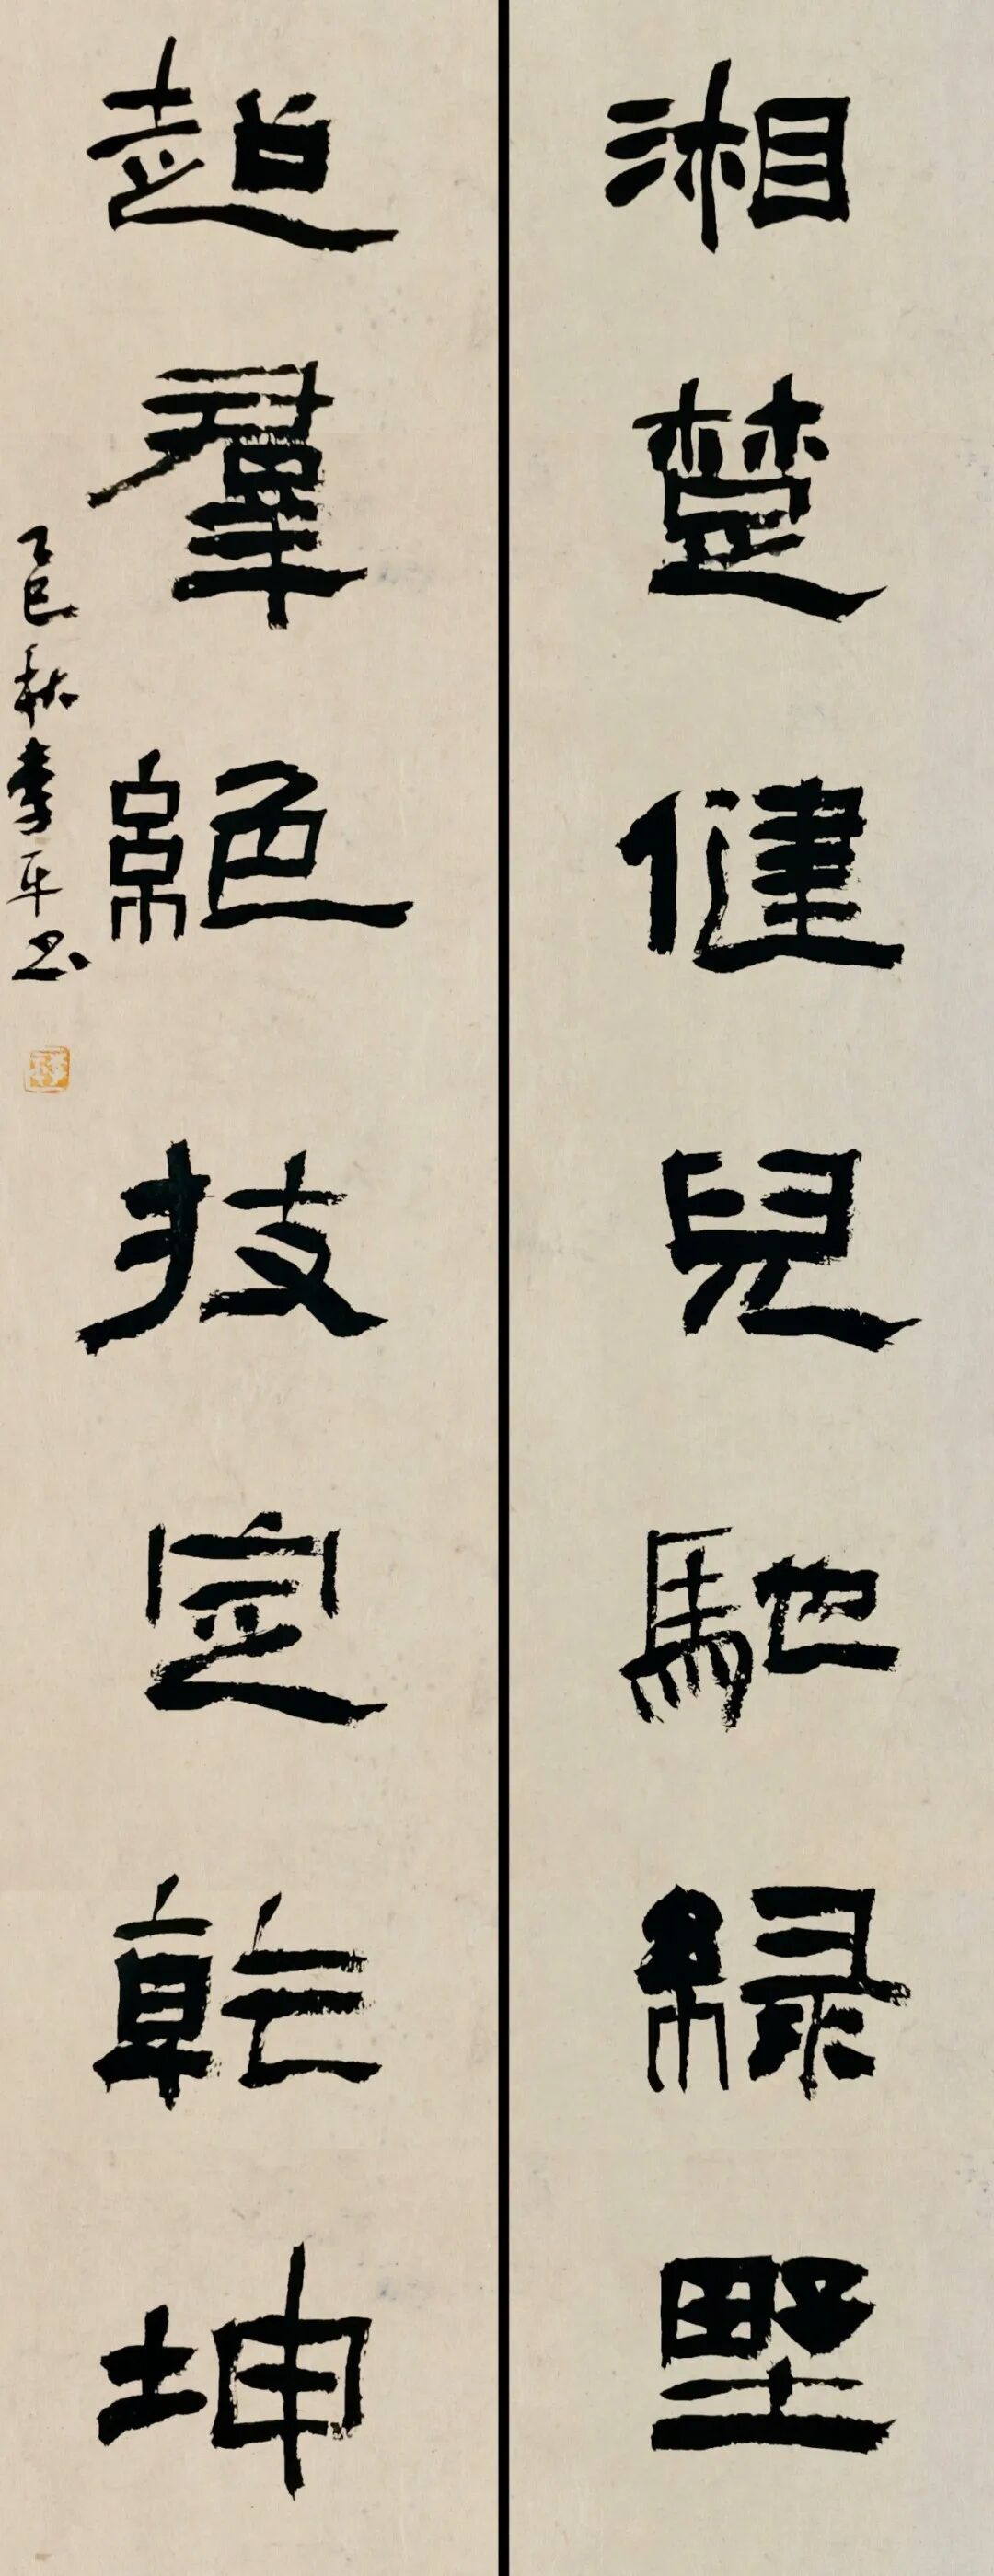 湘楚健兒馳綠野
超羣絕技定乾坤
乙巳秋李平书